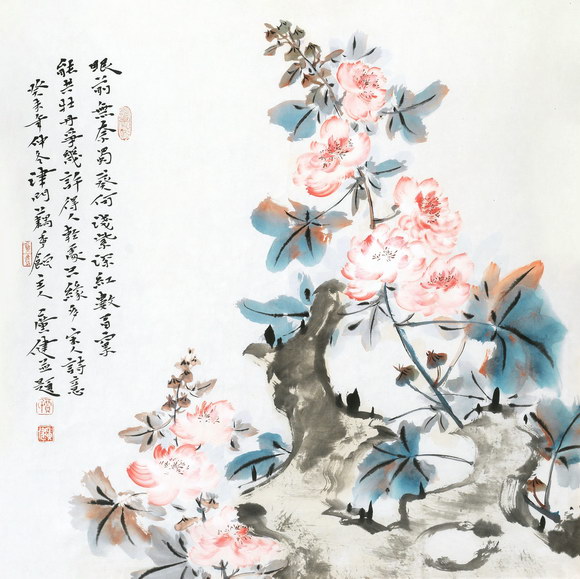 眼前無奈蜀葵何淺紫深紅數百窠
能共牡丹爭幾許得人輕處只緣多宋人詩意
癸未年仲冬津門藕香館主人 健並題